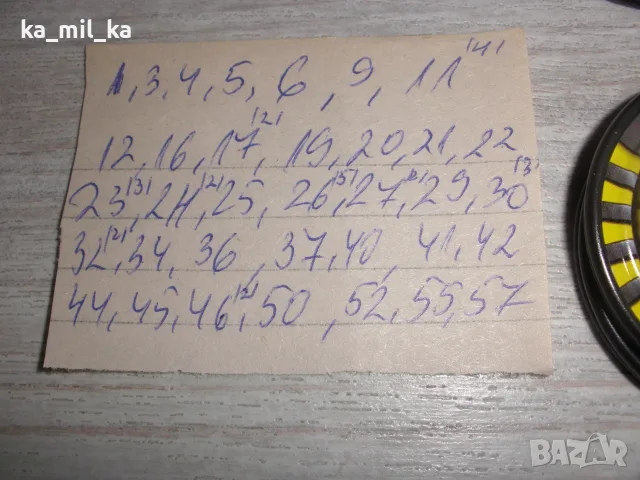 ka_mil_ka
1,3,4,5, 6, 9, 11 (4)
12,16,17 (2), 19,20,21,22
23 (3), 24 (2), 25, 26 (5), 27, 29, 30 (3)
32 (2), 34, 36, 37,40, 41,42
44,45,46 (2), 50, 52,55,57
BAZAR